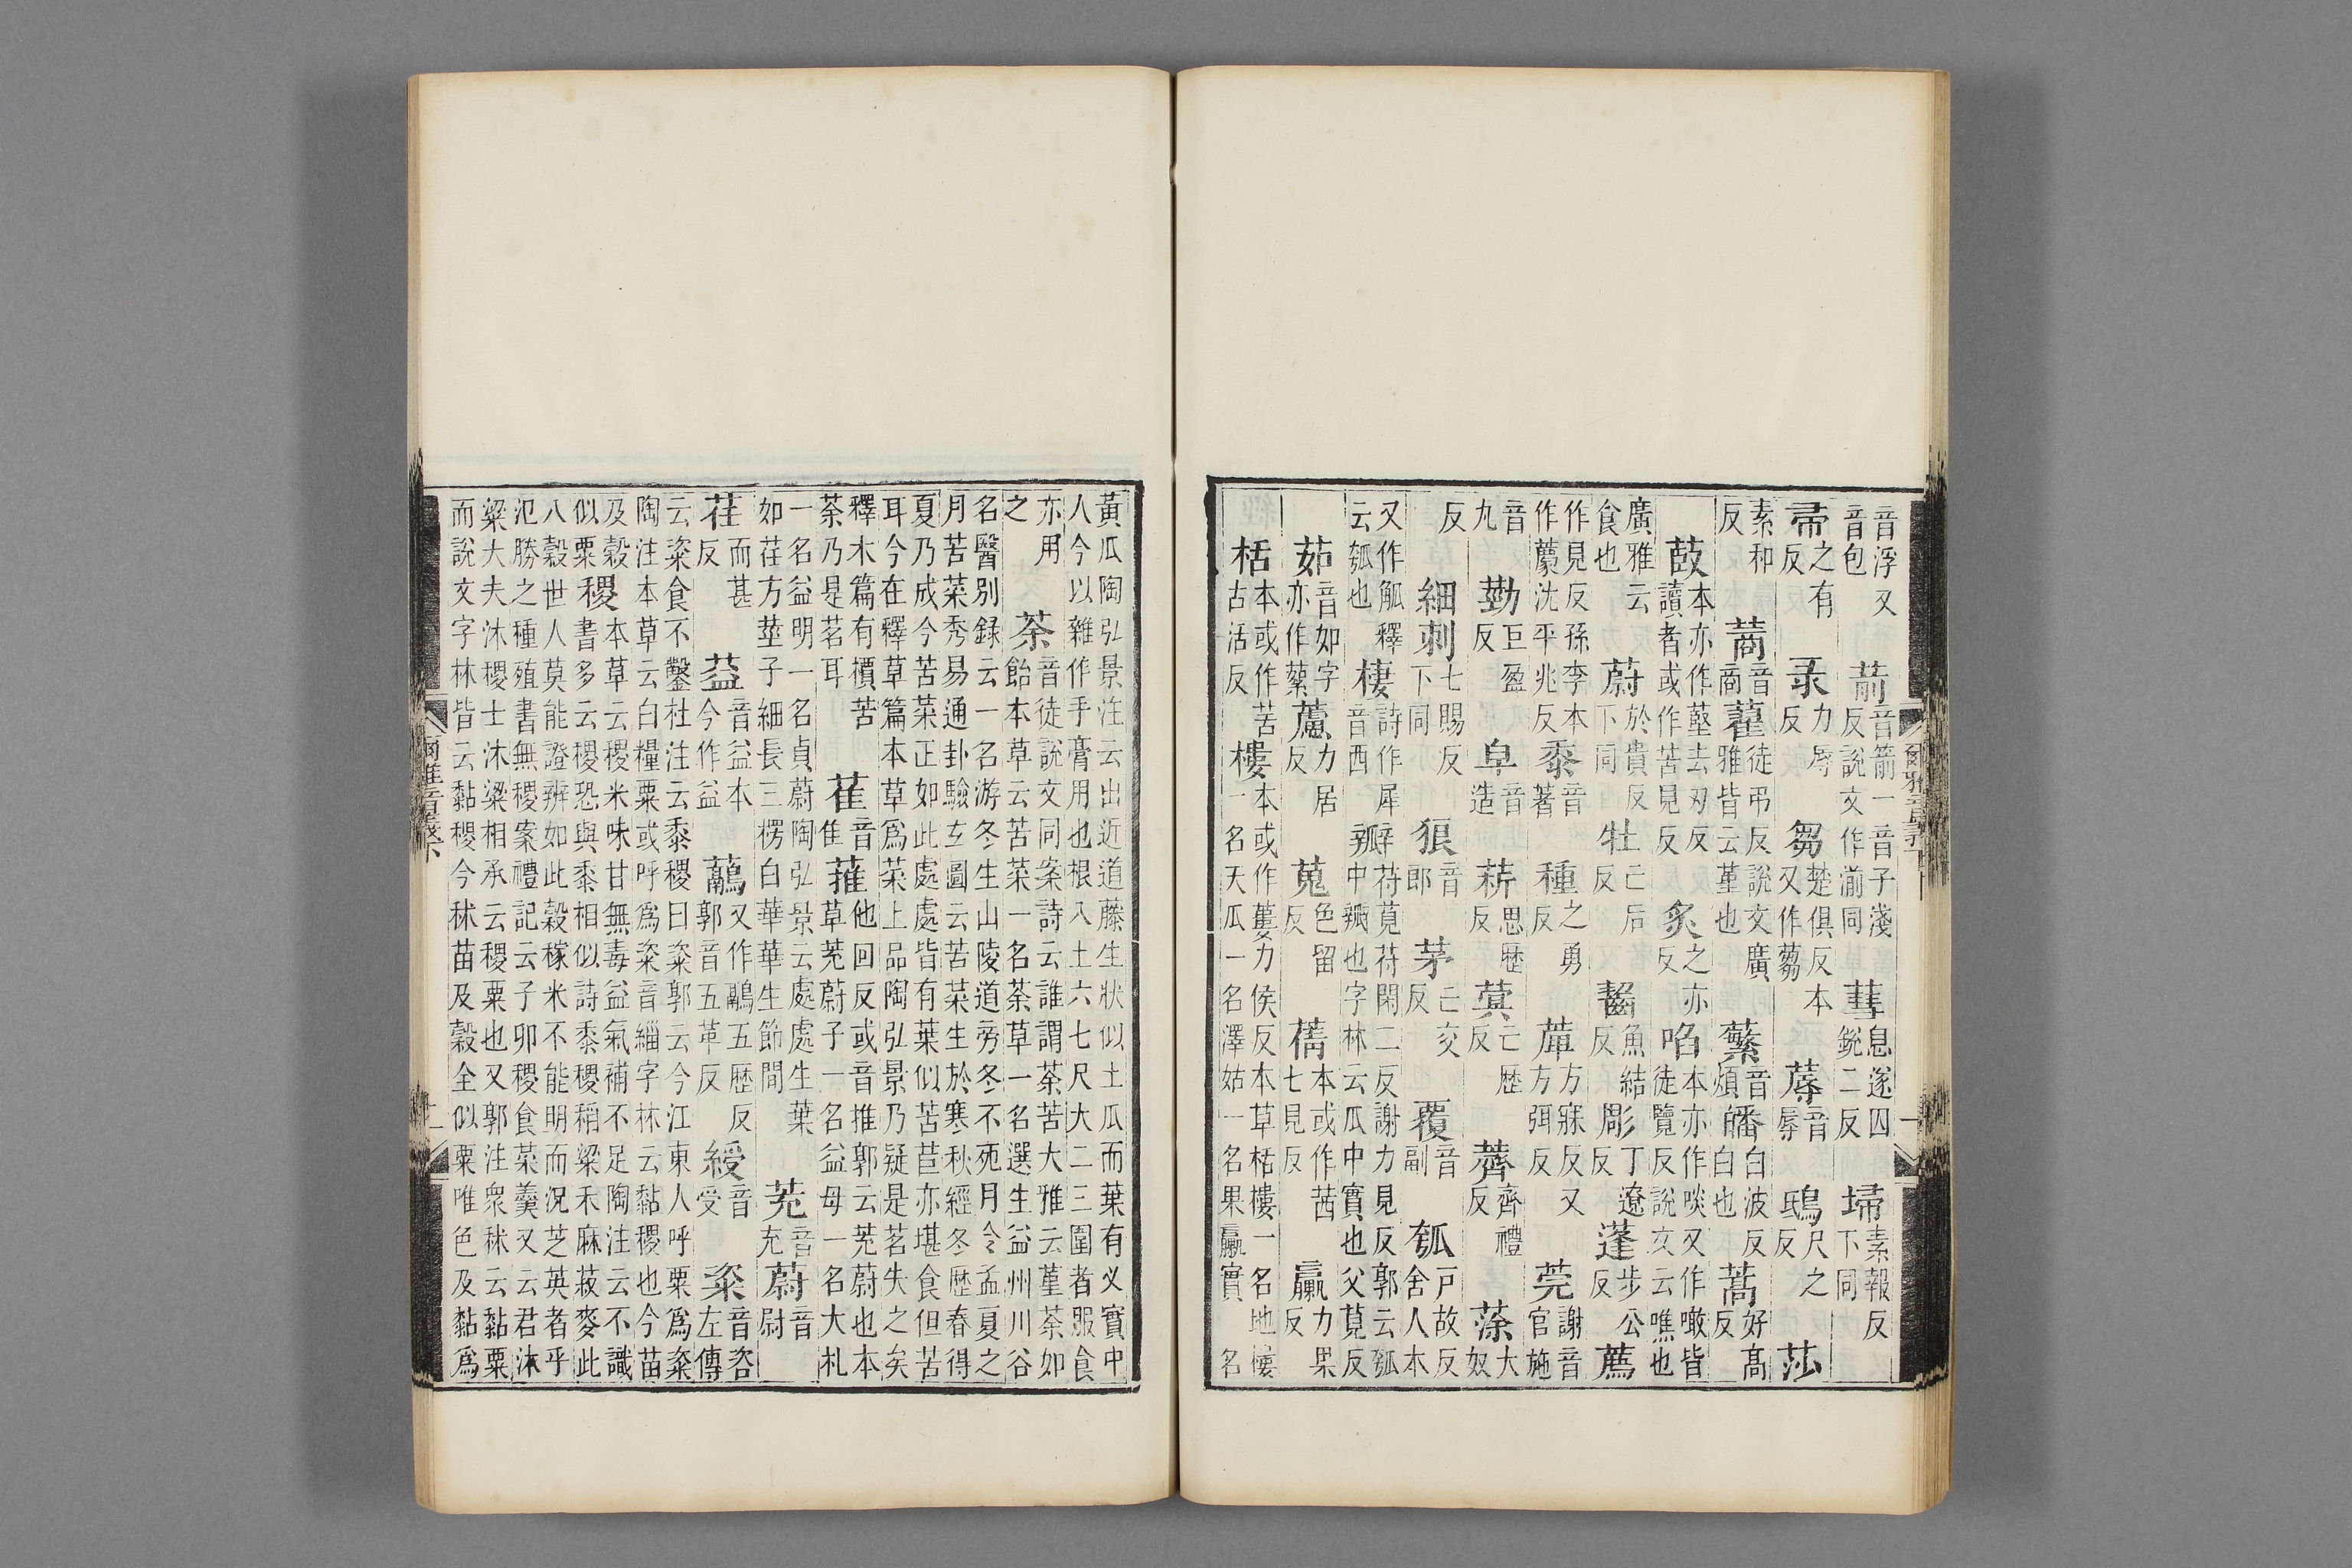 音浮又音包 葥音箭一音子淺反說文作湔同 彗息遂囚銳二反 埽素報反下同
帚之有反 录力辱反 芻楚俱反本又作蒭 蓐音辱 鴟尺之反 莎
素和反 蔏音商 藋徒弔反說文廣雅皆云堇也 蘩音煩 皤白波反白也 蒿好高反
菣本亦作去刃反讀者或作苦見反 炙之亦反 啗本亦作啖又作噉皆徒覽反說文云噍也
廣雅云食也 蔚於貴反下同 牡亡后反 齧魚結反 彫丁遼反 蓬步公反 薦
作見反孫李本作藨沈平兆反 黍音著 種之勇反 萆方寐反又方弭反 莞謝音官施
音九 勤巨盈反 阜音造 菥思歷反 蓂亡歷反 薺齊禮反 蒤大奴
反 細刺七賜反下同 狼音郎 茅亡交反 覆音副 瓠戶故反舍人本
又作觚釋云瓠也 棲詩作犀音西 瓣辨苻莧苻閑二反謝力見反郭云瓠中瓣也字林云瓜中實也父莧反
茹音如字亦作蕠 藘力居反 蒐色留反 蒨本或作茜七見反 臝力果反
栝本或作苦古活反 樓本或作蔞力侯反本草栝樓一名地樓一名天瓜一名澤姑一名果臝實名
爾雅音義下
黃瓜陶弘景注云出近道藤生狀似土瓜而葉有乂實中人今以雜作手膏用也根入土六七尺大二三圍者服食
亦用之 荼音徒說文同案詩云誰謂荼苦大雅云堇荼如飴本草云苦菜一名荼草一名選生益州川谷
名醫別録云一名游冬生山陵道旁冬不死月令孟夏之月苦菜秀易通卦驗玄圖云苦菜生於寒秋經冬歷春得
夏乃成今苦菜正如此處處皆有葉似苦苣亦堪食但苦耳今在釋草篇本草爲菜上品陶弘景乃疑是茗失之矣
釋木篇有檟苦荼乃是茗耳 萑音隹 蓷他回反或音推郭云茺蔚也本草茺蔚子一名益母一名大札
一名益明一名貞蔚陶弘景云處處生葉如荏方莖子細長三楞白華華生節間 茺音充 蔚音尉
荏而甚反 蓋音益本今作益 虉又作鷊五歷反郭音五革反 綬音受 粢音咨左傳
云粢食不鑿杜注云黍稷曰粢郭云今江東人呼粟爲粢陶注本草云白糧粟或呼爲粢音緇字林云黏稷也今苗
及穀似粟 稷本草云稷米味甘無毒益氣補不足陶注云不識書多云稷恐與黍相似詩黍稷稻粱禾麻菽麥此
八穀世人莫能證辨如此穀稼米不能明而況芝英者乎氾勝之種殖書無稷案禮記云子卯稷食菜羹又云君沐
粱大夫沐稷士沐粱相承云稷粟也又郭注衆秫云黏粟而說文字林皆云黏稷今秫苗及穀全似粟唯色及黏爲
爾雅音義下